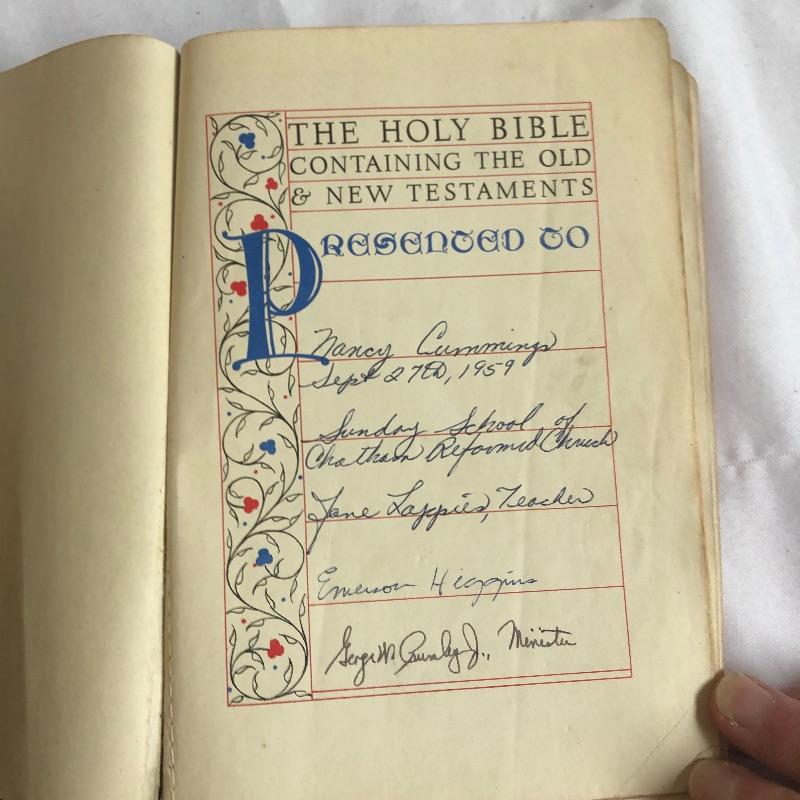 THE HOLY BIBLE
CONTAINING THE OLD
& NEW TESTAMENTS
PRESENTED TO
Nancy Cummings
Sept 27th, 1959
Sunday School of
Chatham Reformed Church
Jane Lappies, Teacher
Emerson Higgins
George Jr., Minister